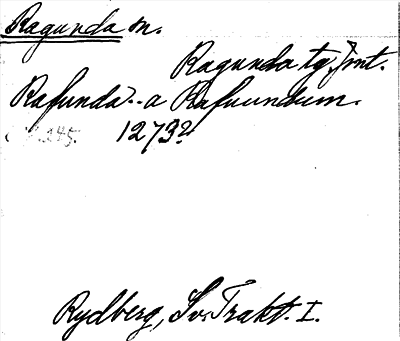 Ragunda sn.
Ragunda tg, Jmt.
Rafunda .. a Rafuundum.
1273?
s. 245.
Rydberg, Sv. Trakt. I.